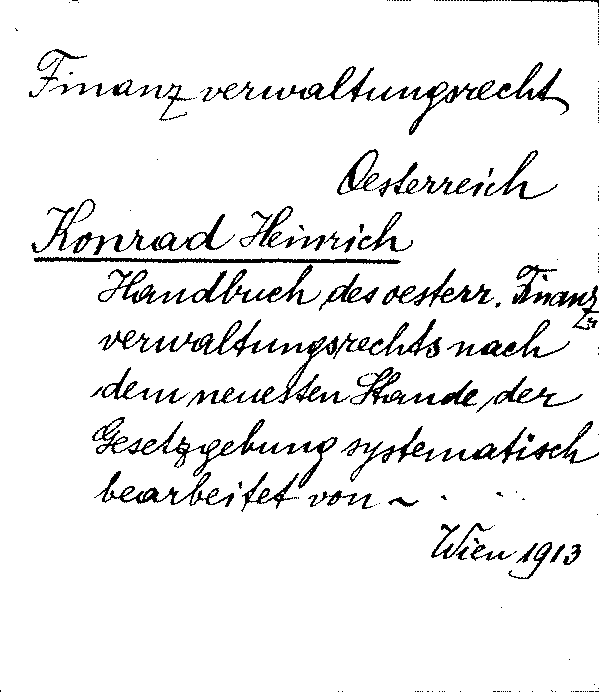 Finanzverwaltungsrecht
Oesterreich
Konrad Heinrich
Handbuch des oesterr. Finanz
verwaltungsrechts nach
dem neuesten Stande der
Gesetzgebung systematisch
bearbeitet von ~
Wien 1913